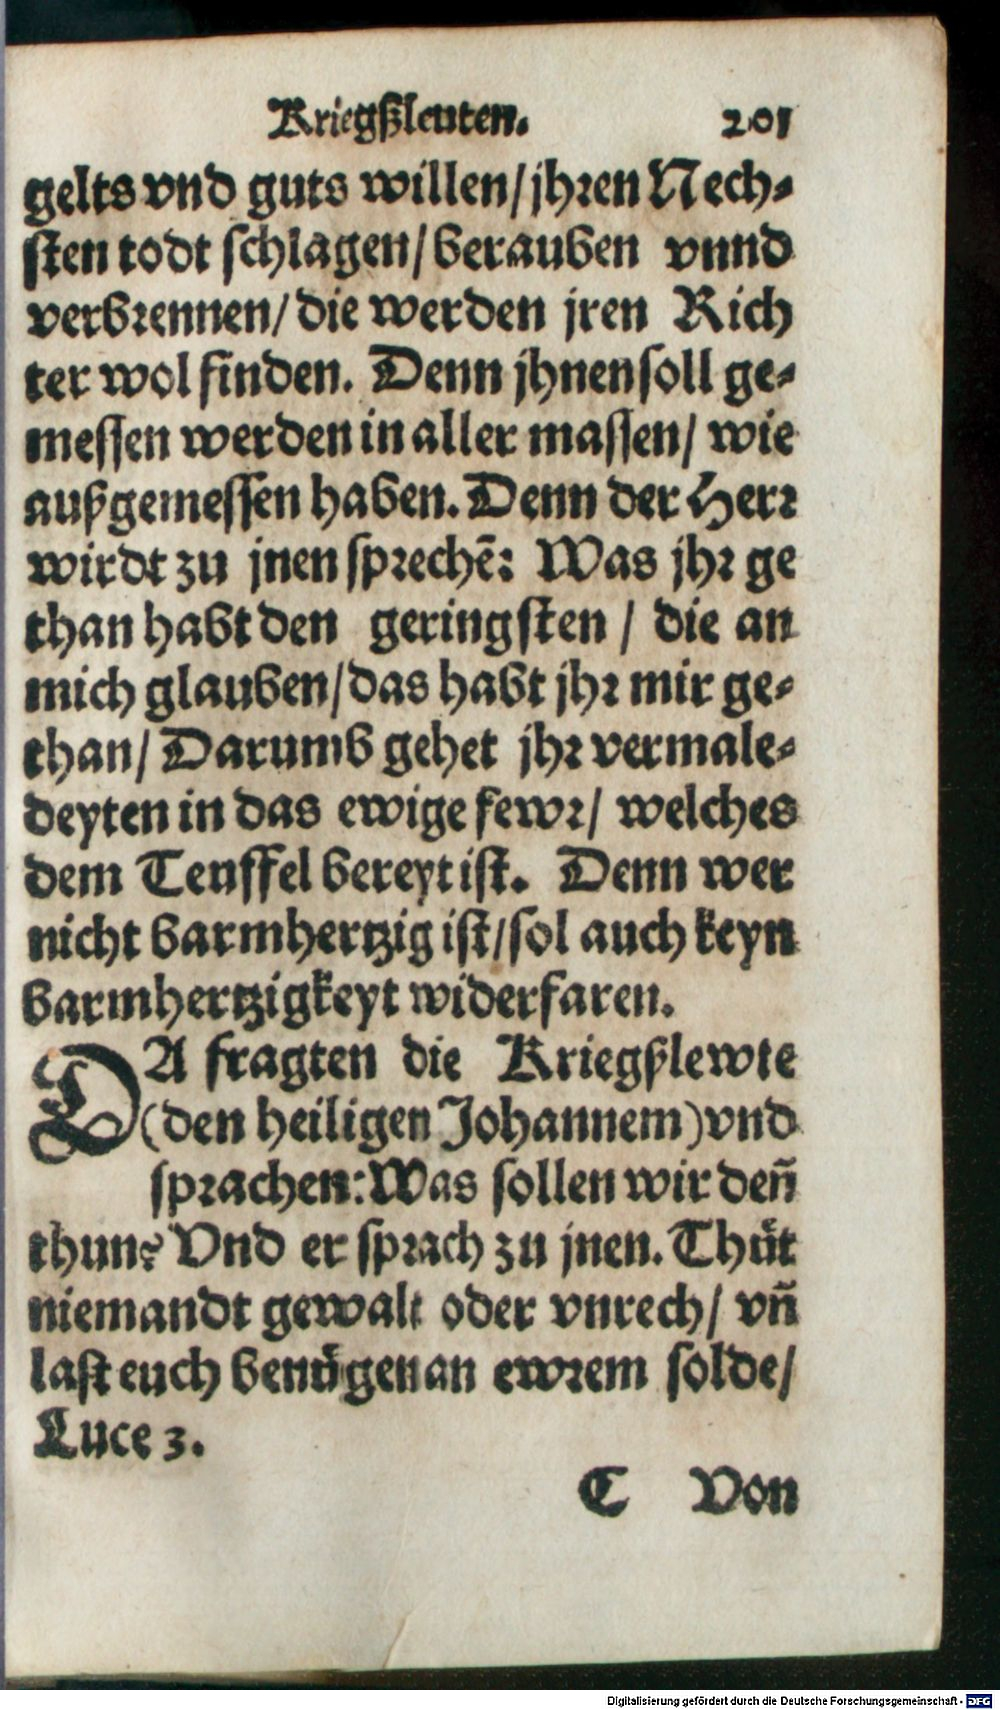 Kriegßleuten. 201
gelts vnd guts willen/jhren Nech-
sten todt schlagen/berauben vnnd
verbrennen/die werden jren Rich
ter wol finden. Denn jhnen soll ge-
messen werden in aller massen/ wie
außgemessen haben. Denn der Herr
wirdt zu jnen sprechē: Was jhr ge
than habt den geringsten / die an
mich glauben/das habt jhr mir ge-
than/ Darumb gehet jhr vermale-
deyten in das ewige fewr/ welches
dem Teuffel bereyt ist. Denn wer
nicht barmhertzig ist/sol auch keyn
barmhertzigkeyt widerfaren.
DA fragten die Kriegßlewte
(den heiligen Johannem) vnd
sprachen: Was sollen wir deñ
thun? Vnd er sprach zu jnen. Thůt
niemandt gewalt oder vnrech/ vñ
last euch benůgen an ewrem solde/
Luce 3.
C Von
Digitalisierung gefördert durch die Deutsche Forschungsgemeinschaft - DFG